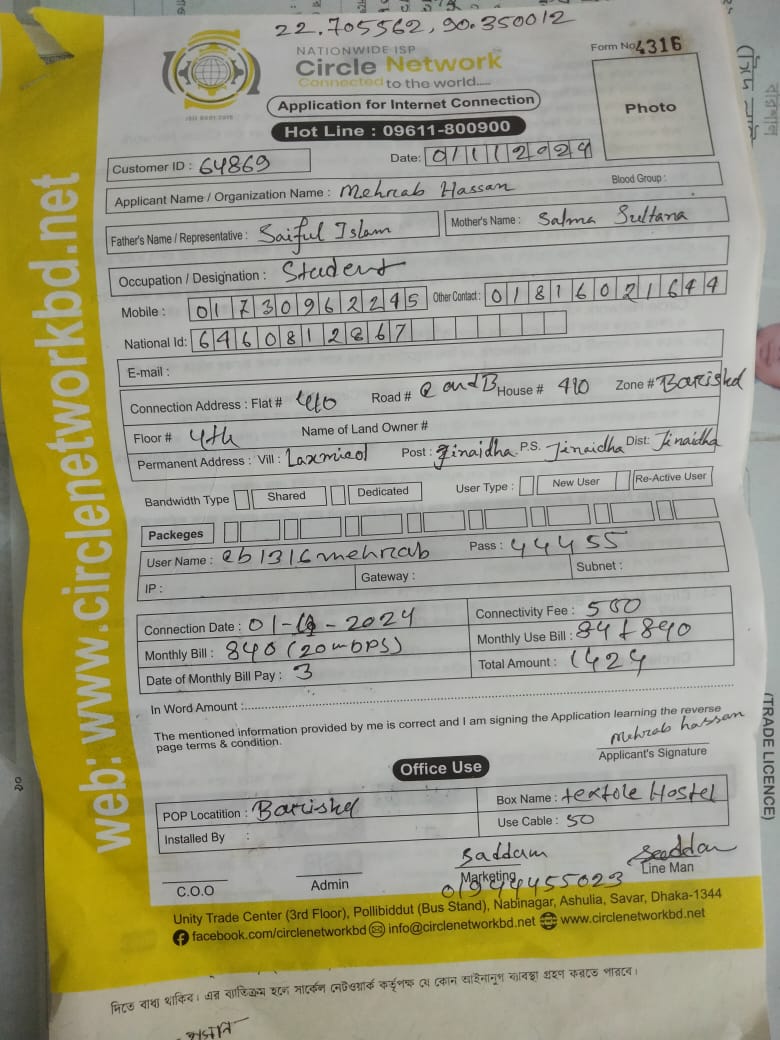 22.705562, 90.350012
NATIONWIDE ISP
Circle Network
Connected to the world.....
Form No. 4316
Application for Internet Connection
Hot Line : 09611-800900
Photo
Customer ID : 64869
Date: 01112024
Applicant Name / Organization Name : Mehrab Hassan
Blood Group :
Father's Name / Representative : Saiful Islam
Mother's Name : Salma Sultana
Occupation / Designation : Student
Mobile : 01730962245
Other Contact : 01816021644
National Id: 6460812867
E-mail :
Connection Address : Flat # 410 Road # C and B House # 410 Zone # Barishal
Floor # 4th Name of Land Owner #
Permanent Address : Vill : Post : Jinaidha P.S. Jinaidha Dist: Jinaidha
Bandwidth Type Shared Dedicated User Type : New User Re-Active User
Packeges
User Name : cb1316mehrab Pass : 44455
IP : Gateway : Subnet :
Connection Date : 01- -2024 Connectivity Fee : 500
Monthly Bill : 840 (20mbps) Monthly Use Bill : 84+840
Date of Monthly Bill Pay : 3 Total Amount : 1424
In Word Amount :
The mentioned information provided by me is correct and I am signing the Application learning the reverse
page terms & condition.
Mehrab hassan
Applicant's Signature
Office Use
POP Locatition : Barishal Box Name : textile Hostel
Installed By : Use Cable : 50
Saddam Saddam
C.O.O Admin Marketing Line Man
01944455023
Unity Trade Center (3rd Floor), Pollibiddut (Bus Stand), Nabinagar, Ashulia, Savar, Dhaka-1344
facebook.com/circlenetworkbd info@circlenetworkbd.net www.circlenetworkbd.net
web: www.circlenetworkbd.net
(TRADE LICENCE)
দিতে বাধ্য থাকিব। এর ব্যতিক্রম হলে সার্কেল নেটওয়ার্ক কর্তৃপক্ষ যে কোন আইনানুগ ব্যবস্থা গ্রহণ করতে পারবে।